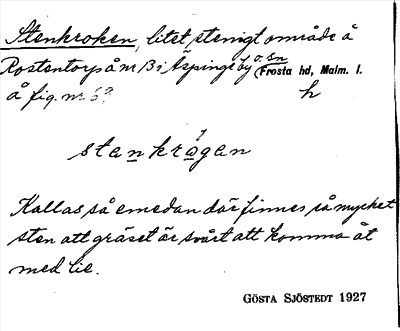 Stenkroken, litet stenigt område å
Rostentorp å nr 13 i Äspinge by o. sn (Frosta hd, Malm. l.
å fig. nr 6? h
stenkrågan
Kallas så emedan där finnes så mycket
sten att gräset är svårt att komma åt
med lie.
GÖSTA SJÖSTEDT 1927